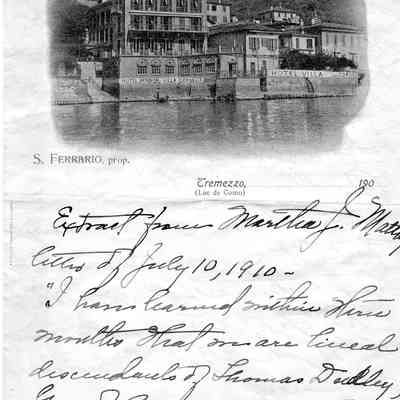 HOTEL VILLA
S. FERRARIO, prop.
Tremezzo, 190
(Lac de Como)
Extract from Martha J.
letter of July 10, 1910 -
"I have learned within three
months that we are lineal
descendants of Thomas Dudley,